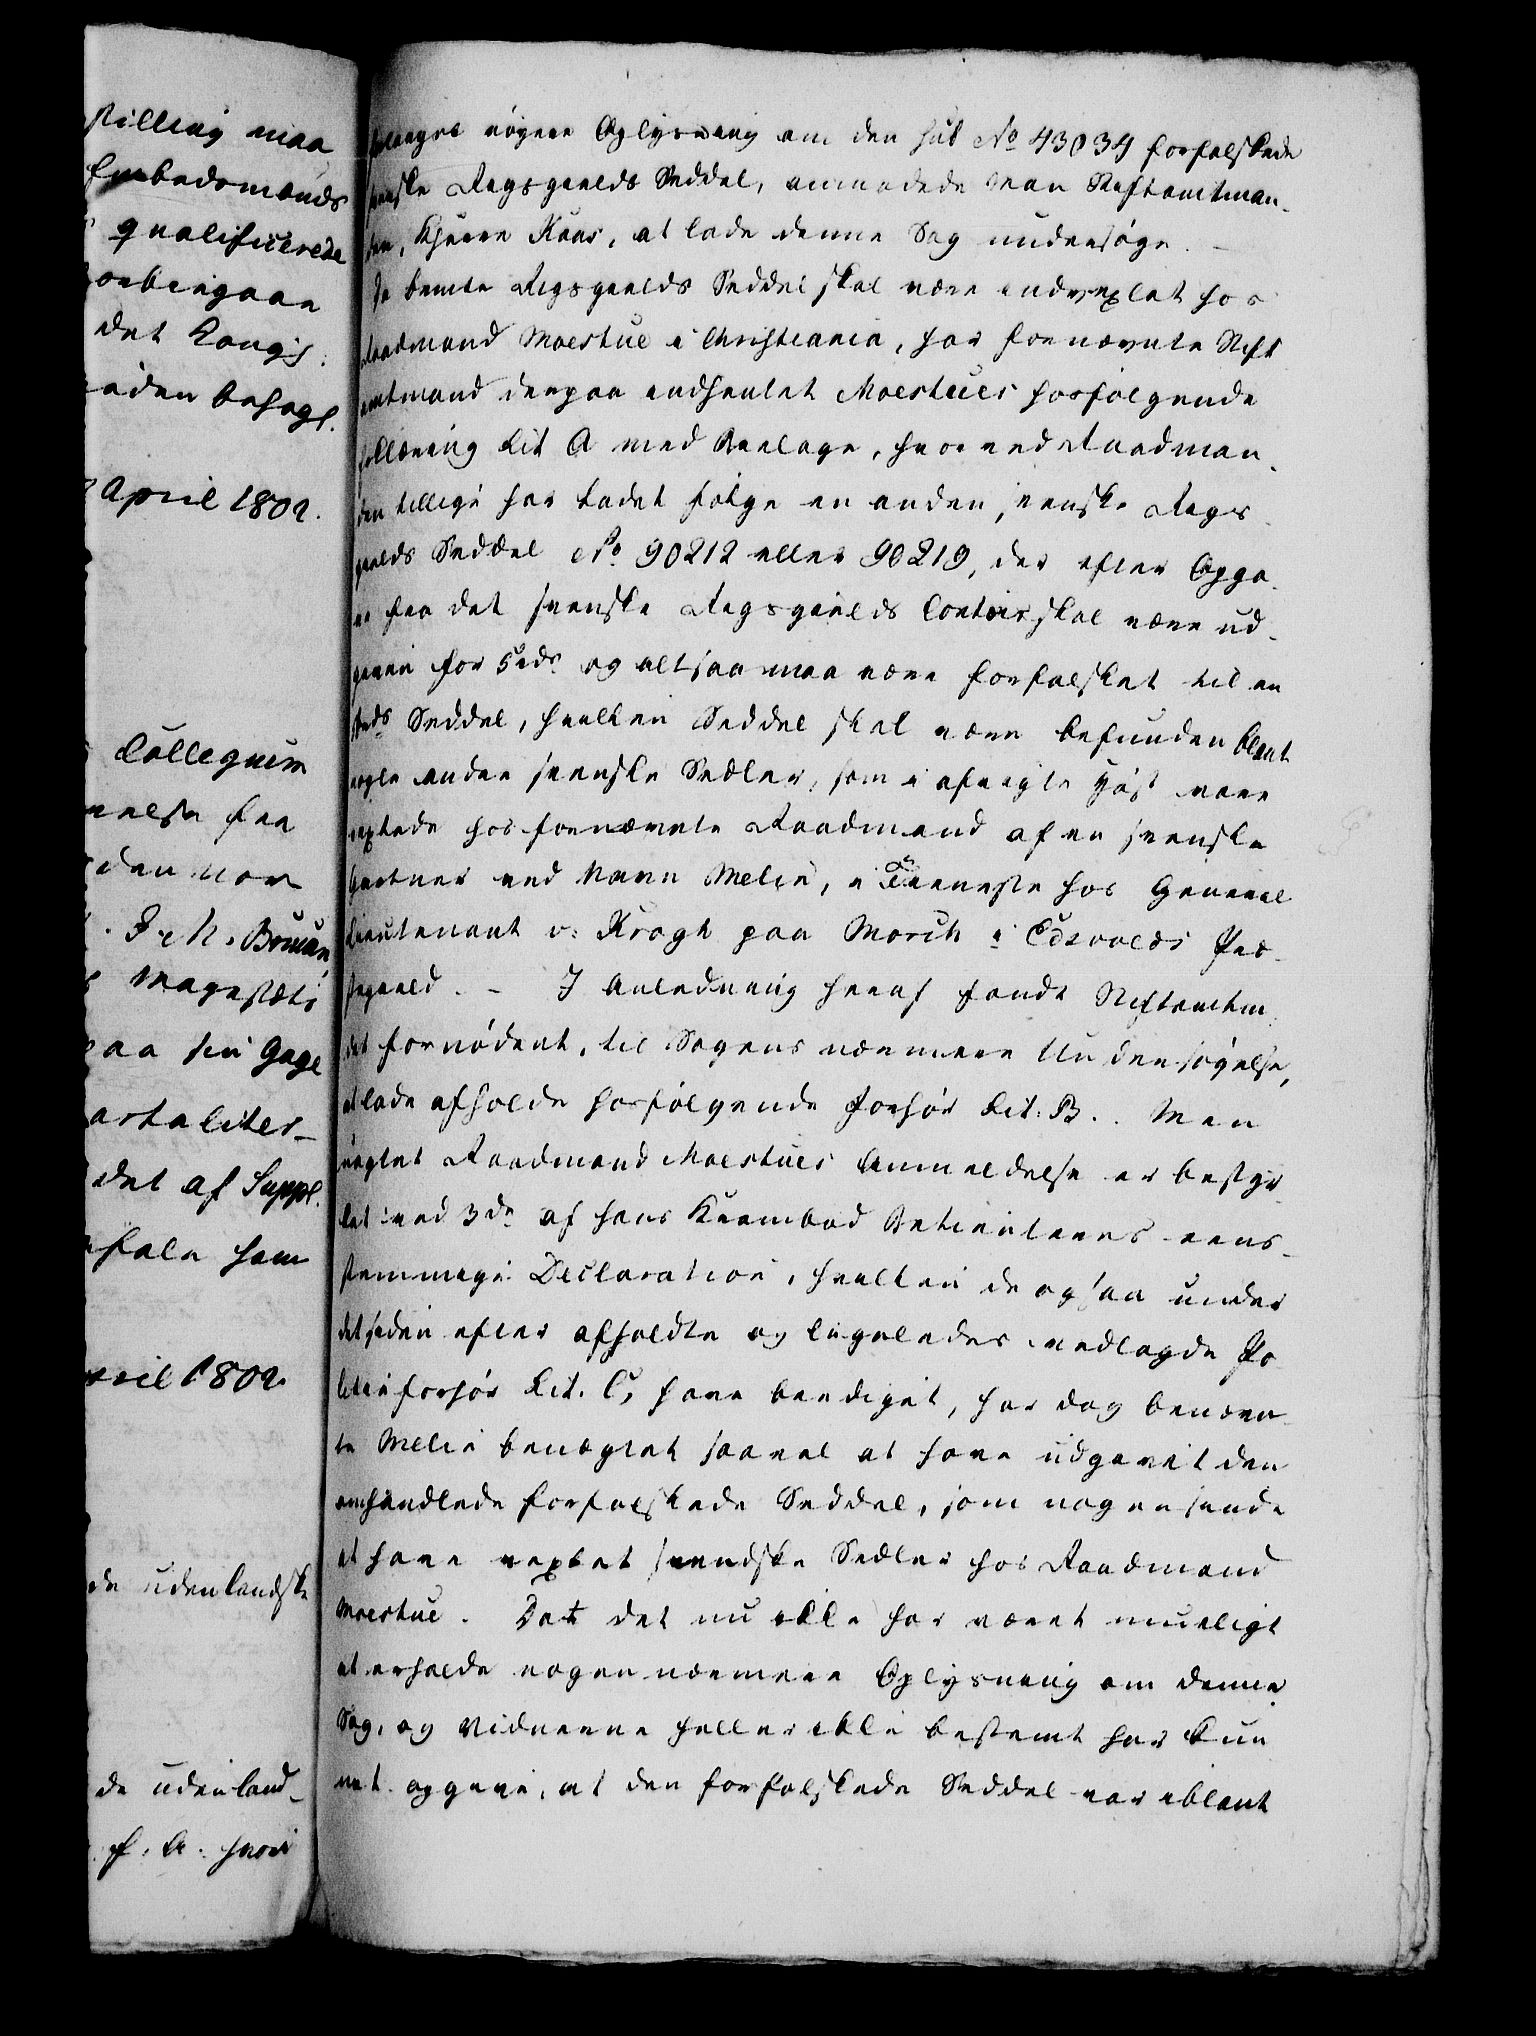 stilling maa
Embedsmænds
qualificerede
forbiegaae
det Kongl:
eden behagl.
April 1802.
Collegium
nelse fra
den nor
J. N. Bruun,
Mayestæts
paa sin Gage
artaliter-
det af Suppl.
fale ham
April 1802.
de udenlandske
de udenland-
p. A. hvori
forlangte nøyere Oplysning om den sub No 43034 forfalskede
svenske Rigsgields Seddel, anmodede man Stiftamtman-
den, Herr Kaas, at lade denne Sag undersøge. -
Da bemte Rigsgields Seddel skal være indvexlet hos
Raadmand Moestue i Christiania, har fornævnte Stift
amtmand derpaa indhentet Moestues hosfølgende
Erklæring Lit A med Beelage, hvorved Raadman-
den tillige har ladet følge en anden svenske Rigs
gields Seddel No. 90212 eller 90219, der efter Opga-
ve fra det svenske Rigsgields Contoir skal være ud-
given for 5 rds og altsaa maa være forfalsket til en
rds Seddel, hvilken Seddel skal være befunden blant
nogle andre svenske Sedler, som i afvigte Høst vare
vexlede hos fornævnte Raadmand af en svensk
Gartner ved Navn Melin, i Tieneste hos General
Lieutenant v: Krogh paa Morik i Edsvolds Præ-
stegield. - I Anledning heraf fandt Stiftamtm.
det fornødent, til Sagens nærmere Undersøgelse,
at lade afholde hosfølgende Forhør Lit: B. Men
uagtet Raadmand Moestues Anmeldelse er bestyr-
ket ved 3de af hans Krambod Betienteres eens-
stemmige Declaration, hvilken de ogsaa under
det siden efter afholdte og ligeledes vedlagde Po
litieforhør Lit. C, have beediget, har dog benævn
te Melin benægtet saavel at have udgivet den
omhandlede forfalskede Seddel, som nogensinde
at have vexlet svendske Sedler hos Raadmand
Moestue. Da det nu ikke har været mueligt
at erholde nogen nærmere Oplysning om denne
Sag, og Vidnerne heller ikke bestemt har kun
net opgive, at den forfalskede Seddel var iblant